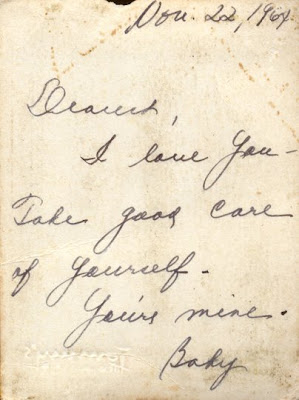 Nov. 22, 1964
Dearest,
I love you-
Take good care
of yourself-
You're mine.
Baby